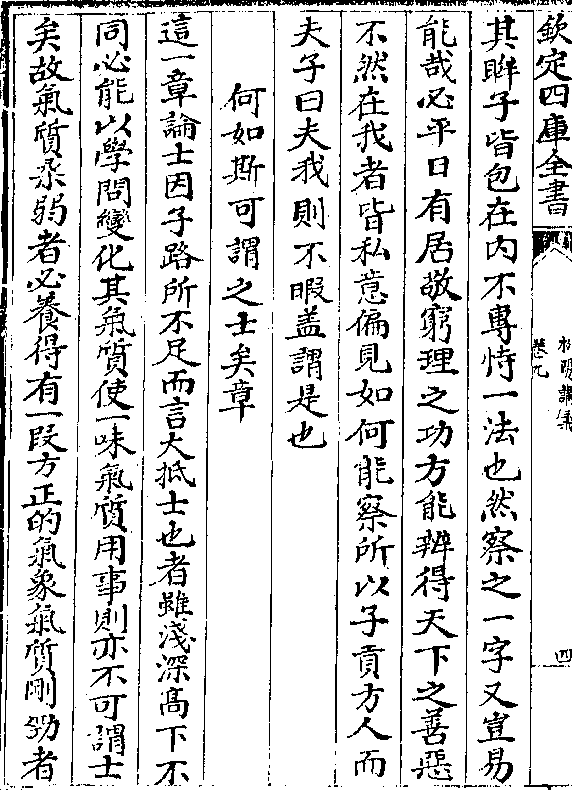 欽定四庫全書
松陽講義
卷九
四
其眸子皆包在内不專恃一法也然察之一字又豈易
能哉必平日有居敬窮理之功方能辨得天下之善惡
不然在我者皆私意偏見如何能察所以子貢方人而
夫子曰夫我則不暇盖謂是也
何如斯可謂之士矣章
這一章論士因子路所不足而言大抵士也者雖淺深髙下不
同必能以學問變化其氣質使一味氣質用事則亦不可謂士
矣故氣質柔弱者必養得有一段方正的氣象氣質剛勁者